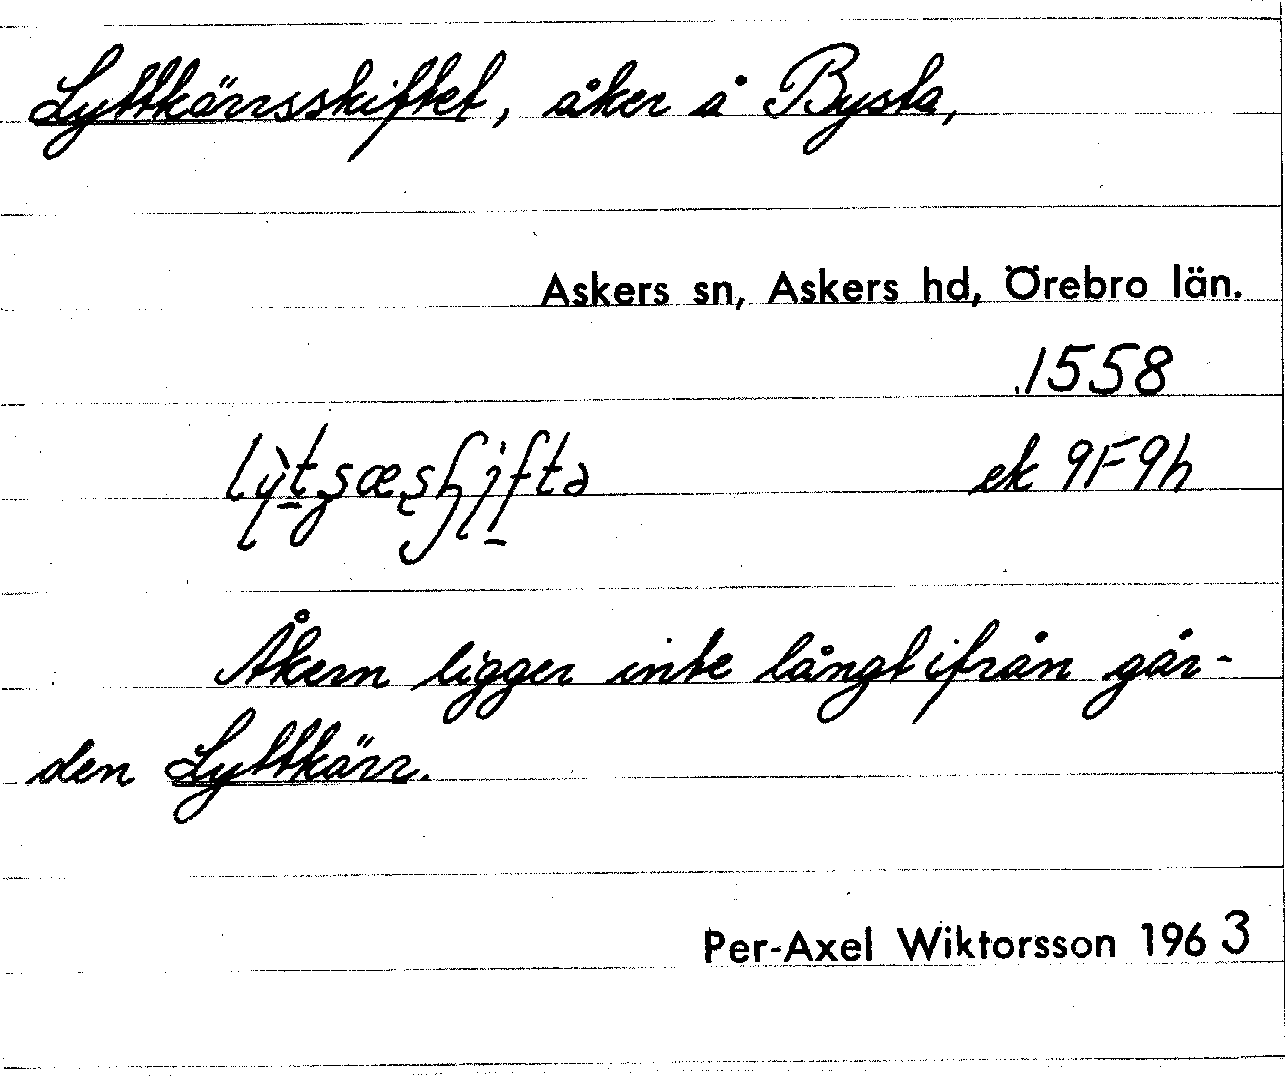 Lyttkärrsskiftet, åker å Bysta,
Askers sn, Askers hd, Örebro län.
1558
ek 9F9h
Åkern ligger inte långt ifrån går-
den Lyttkärr.
Per-Axel Wiktorsson 1963